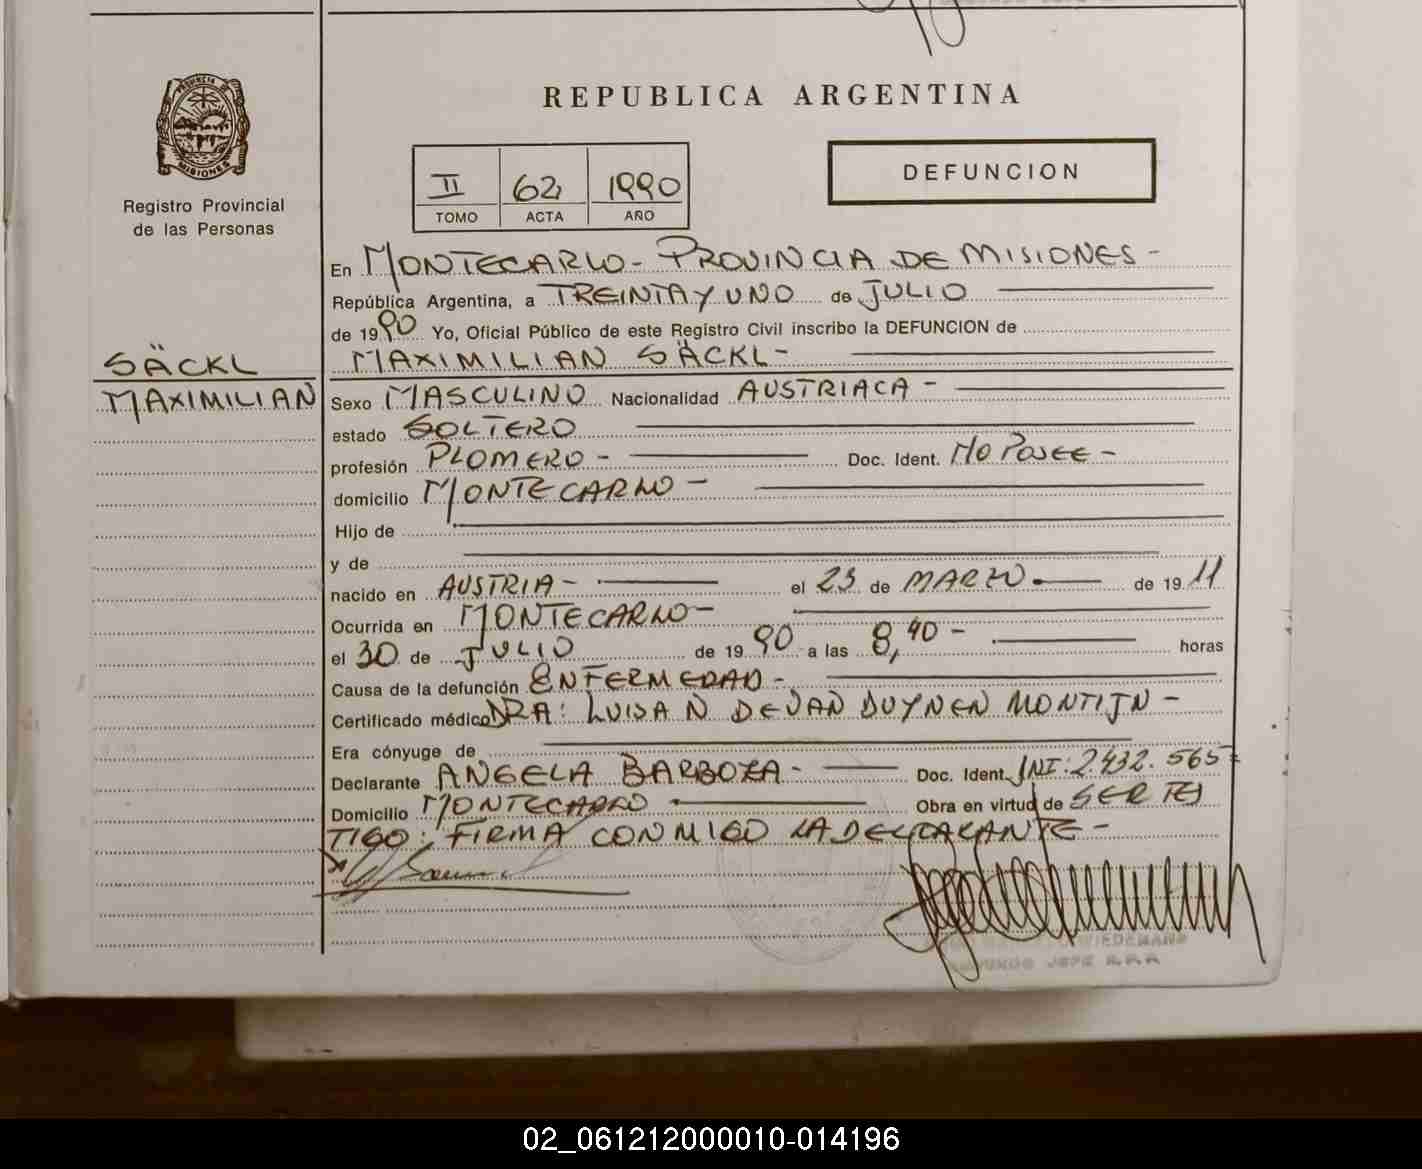 PROVINCIA DE
MISIONES
Registro Provincial
de las Personas
SÄCKL
MAXIMILIAN
REPUBLICA ARGENTINA
II 62 1990
TOMO ACTA AÑO
DEFUNCION
En MONTECARLO - PROVINCIA DE MISIONES -
República Argentina, a TREINTA Y UNO de JULIO
de 1990 Yo, Oficial Público de este Registro Civil inscribo la DEFUNCION de
MAXIMILIAN SÄCKL -
Sexo MASCULINO Nacionalidad AUSTRIACA -
estado SOLTERO
profesión PLOMERO - Doc. Ident. NO POSEE -
domicilio MONTECARLO -
Hijo de
y de
nacido en AUSTRIA - el 23 de MARZO de 1911
Ocurrida en MONTECARLO -
el 30 de JULIO de 1990 a las 8,40 - horas
Causa de la defunción ENFERMEDAD -
Certificado médico DRA: LUISA N DE VAN DUYNEN MONTIJN -
Era cónyuge de
Declarante ANGELA BARBOZA - Doc. Ident. DNI: 2.432.565 -
Domicilio MONTECARLO Obra en virtud de SER TES
TIGO: FIRMA CONMIGO LA DECLARANTE -
WIEDEMANN
JEFE R.P.P.
02_061212000010-014196